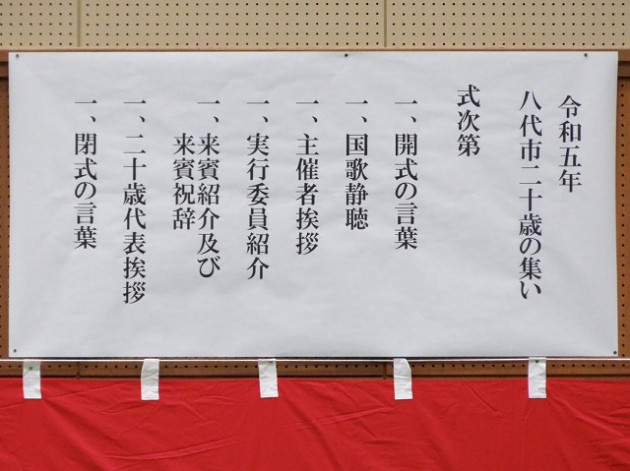 令和五年
八代市二十歳の集い
式次第
一、開式の言葉
一、国歌静聴
一、主催者挨拶
一、実行委員紹介
一、来賓紹介及び
来賓祝辞
一、二十歳代表挨拶
一、閉式の言葉